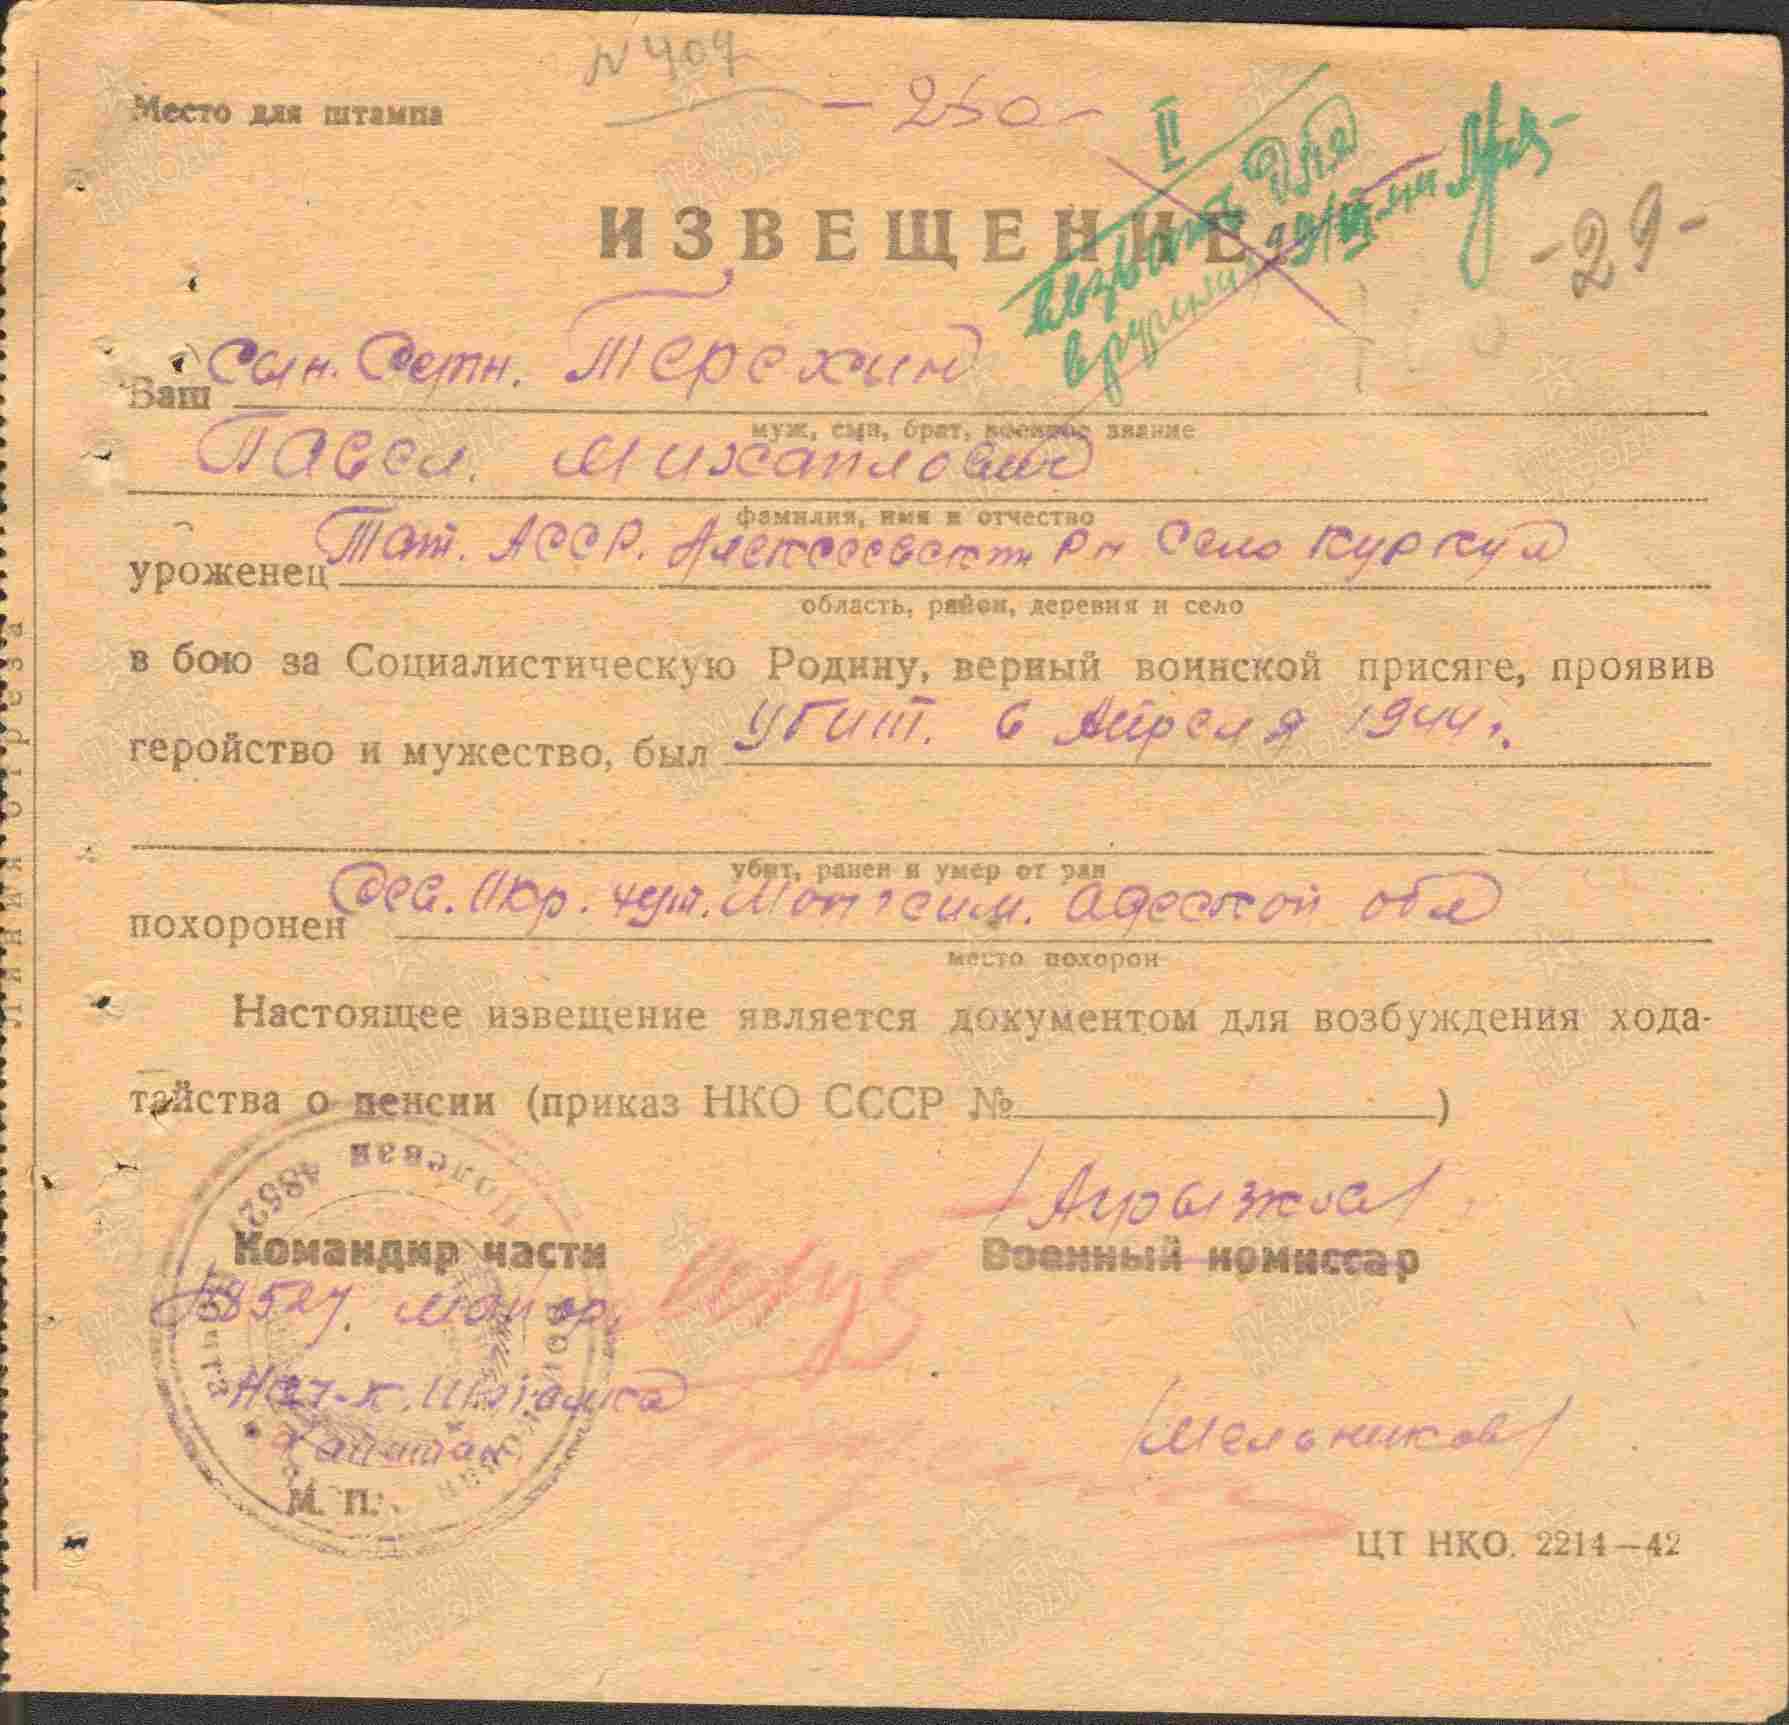 Место для штампа
N 407
- 250 -
II
вызвать для
вручения
- 29 -
ИЗВЕЩЕНИЕ
Ваш Сын. Терехин
муж, сын, брат, военное звание
Павел. Михайлович
фамилия, имя и отчество
уроженец Тат. АССР. Алексеевский Рн Село Куркул
область, район, деревня и село
в бою за Социалистическую Родину, верный воинской присяге, проявив
геройство и мужество, был убит. 6 Апреля 1944 г.
убит, ранен и умер от ран
похоронен Сев. Окр. Одесской обл
место похорон
Настоящее извещение является документом для возбуждения хода-
тайства о пенсии (приказ НКО СССР № )
Командир части
48527. майор,
/Агрызков/
Военный комиссар
Нач-к. Штаба
Капитан
/Мельников/
М. П.
Полевая 48527
Воинская часть
ЦТ НКО. 2214—42
Линия отреза
ПАМЯТЬ НАРОДА